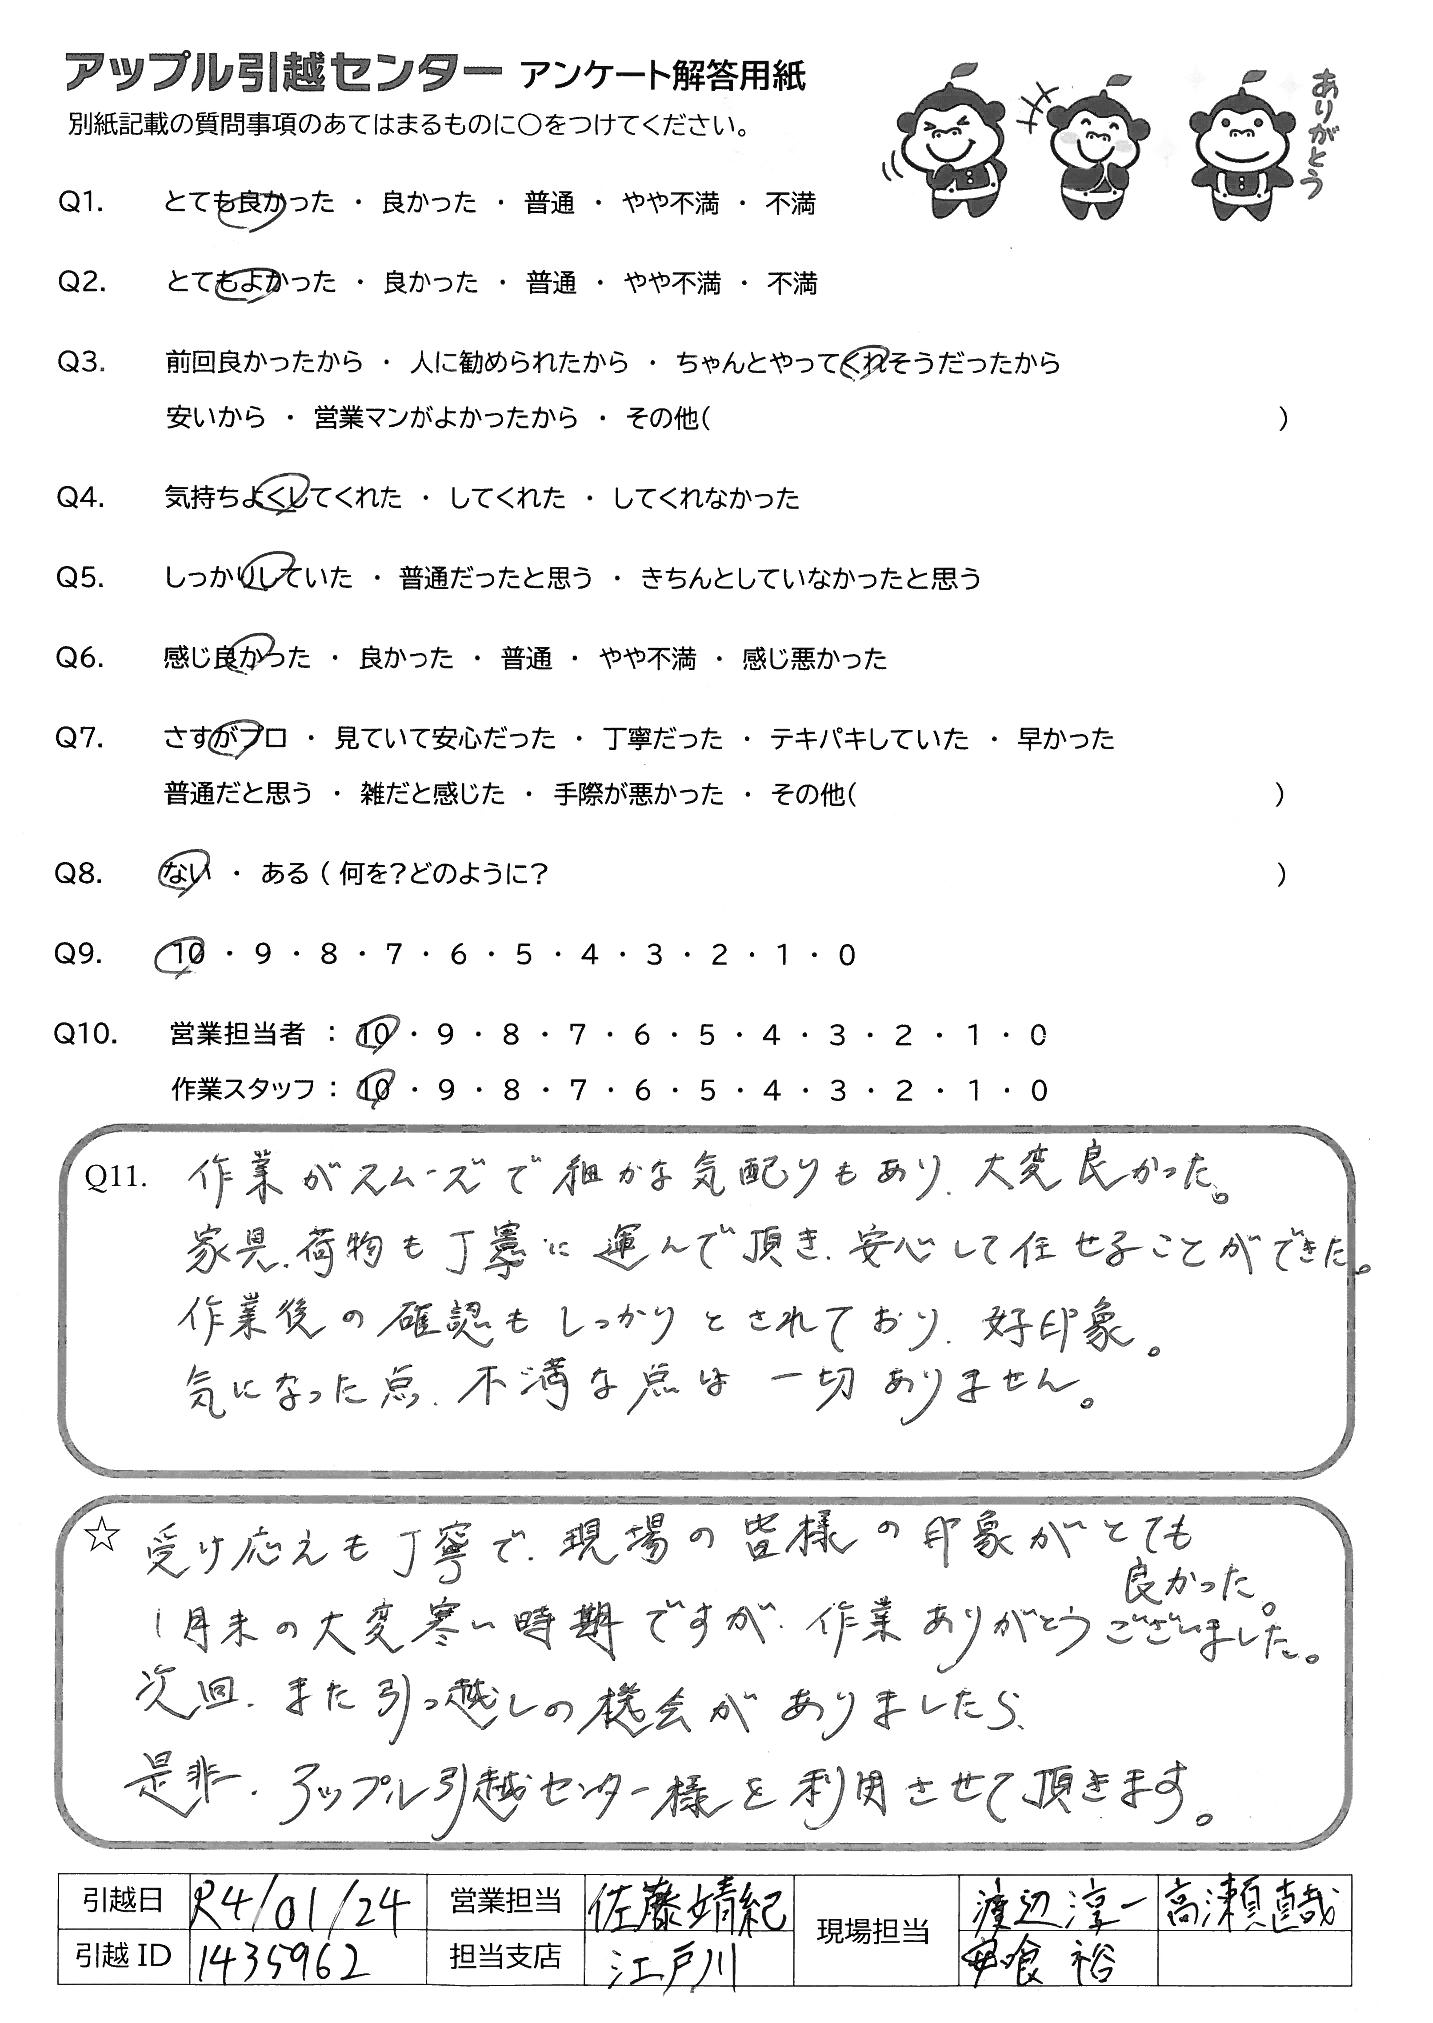 アップル引越センター アンケート解答用紙
別紙記載の質問事項のあてはまるものに〇をつけてください。
ありがとう
Q1. とても良かった ・ 良かった ・ 普通 ・ やや不満 ・ 不満
Q2. とてもよかった ・ 良かった ・ 普通 ・ やや不満 ・ 不満
Q3. 前回良かったから ・ 人に勧められたから ・ ちゃんとやってくれそうだったから
安いから ・ 営業マンがよかったから ・ その他( )
Q4. 気持ちよくしてくれた ・ してくれた ・ してくれなかった
Q5. しっかりしていた ・ 普通だったと思う ・ きちんとしていなかったと思う
Q6. 感じ良かった ・ 良かった ・ 普通 ・ やや不満 ・ 感じ悪かった
Q7. さすがプロ ・ 見ていて安心だった ・ 丁寧だった ・ テキパキしていた ・ 早かった
普通だと思う ・ 雑だと感じた ・ 手際が悪かった ・ その他( )
Q8. ない ・ ある ( 何を？どのように？ )
Q9. 10 ・ 9 ・ 8 ・ 7 ・ 6 ・ 5 ・ 4 ・ 3 ・ 2 ・ 1 ・ 0
Q10. 営業担当者 ： 10 ・ 9 ・ 8 ・ 7 ・ 6 ・ 5 ・ 4 ・ 3 ・ 2 ・ 1 ・ 0
作業スタッフ ： 10 ・ 9 ・ 8 ・ 7 ・ 6 ・ 5 ・ 4 ・ 3 ・ 2 ・ 1 ・ 0
Q11. 作業がスムーズで細かな気配りもあり、大変良かった。
家具、荷物も丁寧に運んで頂き、安心して任せることができた。
作業後の確認もしっかりとされており、好印象。
気になった点、不満な点は一切ありません。
☆ 受け応えも丁寧で、現場の皆様の印象がとても
良かった。
1月末の大変寒い時期ですが、作業ありがとうございました。
次回、また引っ越しの機会がありましたら、
是非、アップル引越センター様を利用させて頂きます。
引越日 R4/01/24 営業担当 佐藤靖紀 現場担当 渡辺淳一 高瀬直哉
引越ID 1435962 担当支店 江戸川 喰 裕